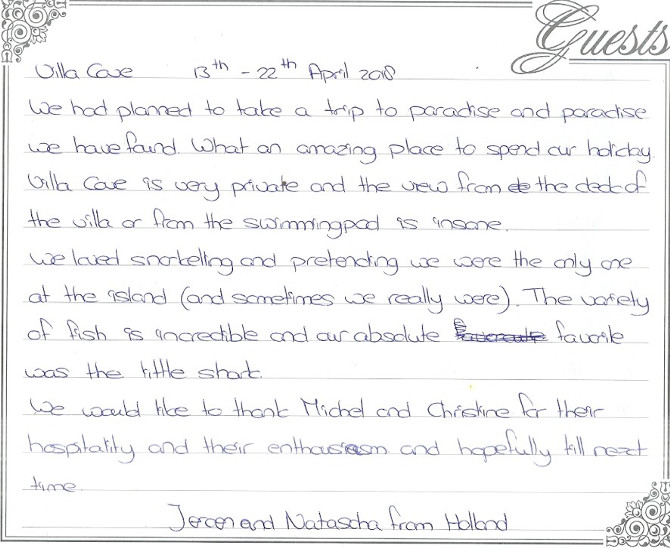 Guests
Villa Cove 13th - 22th April 2018
We had planned to take a trip to paradise and paradise
we have found. What an amazing place to spend our holiday.
Villa Cove is very private and the view from the deck of
the villa or from the swimmingpool is insane.
We loved snorkelling and pretending we were the only one
at the island (and sometimes we really were). The variety
of fish is incredible and our absolute favorite
was the little shark.
We would like to thank Michel and Christine for their
hospitality and their enthousiasm and hopefully till next
time.
Jeroen and Natascha from Holland